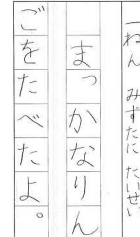 ねん みずたに たいせい
まっかなりん
ごをたべたよ。